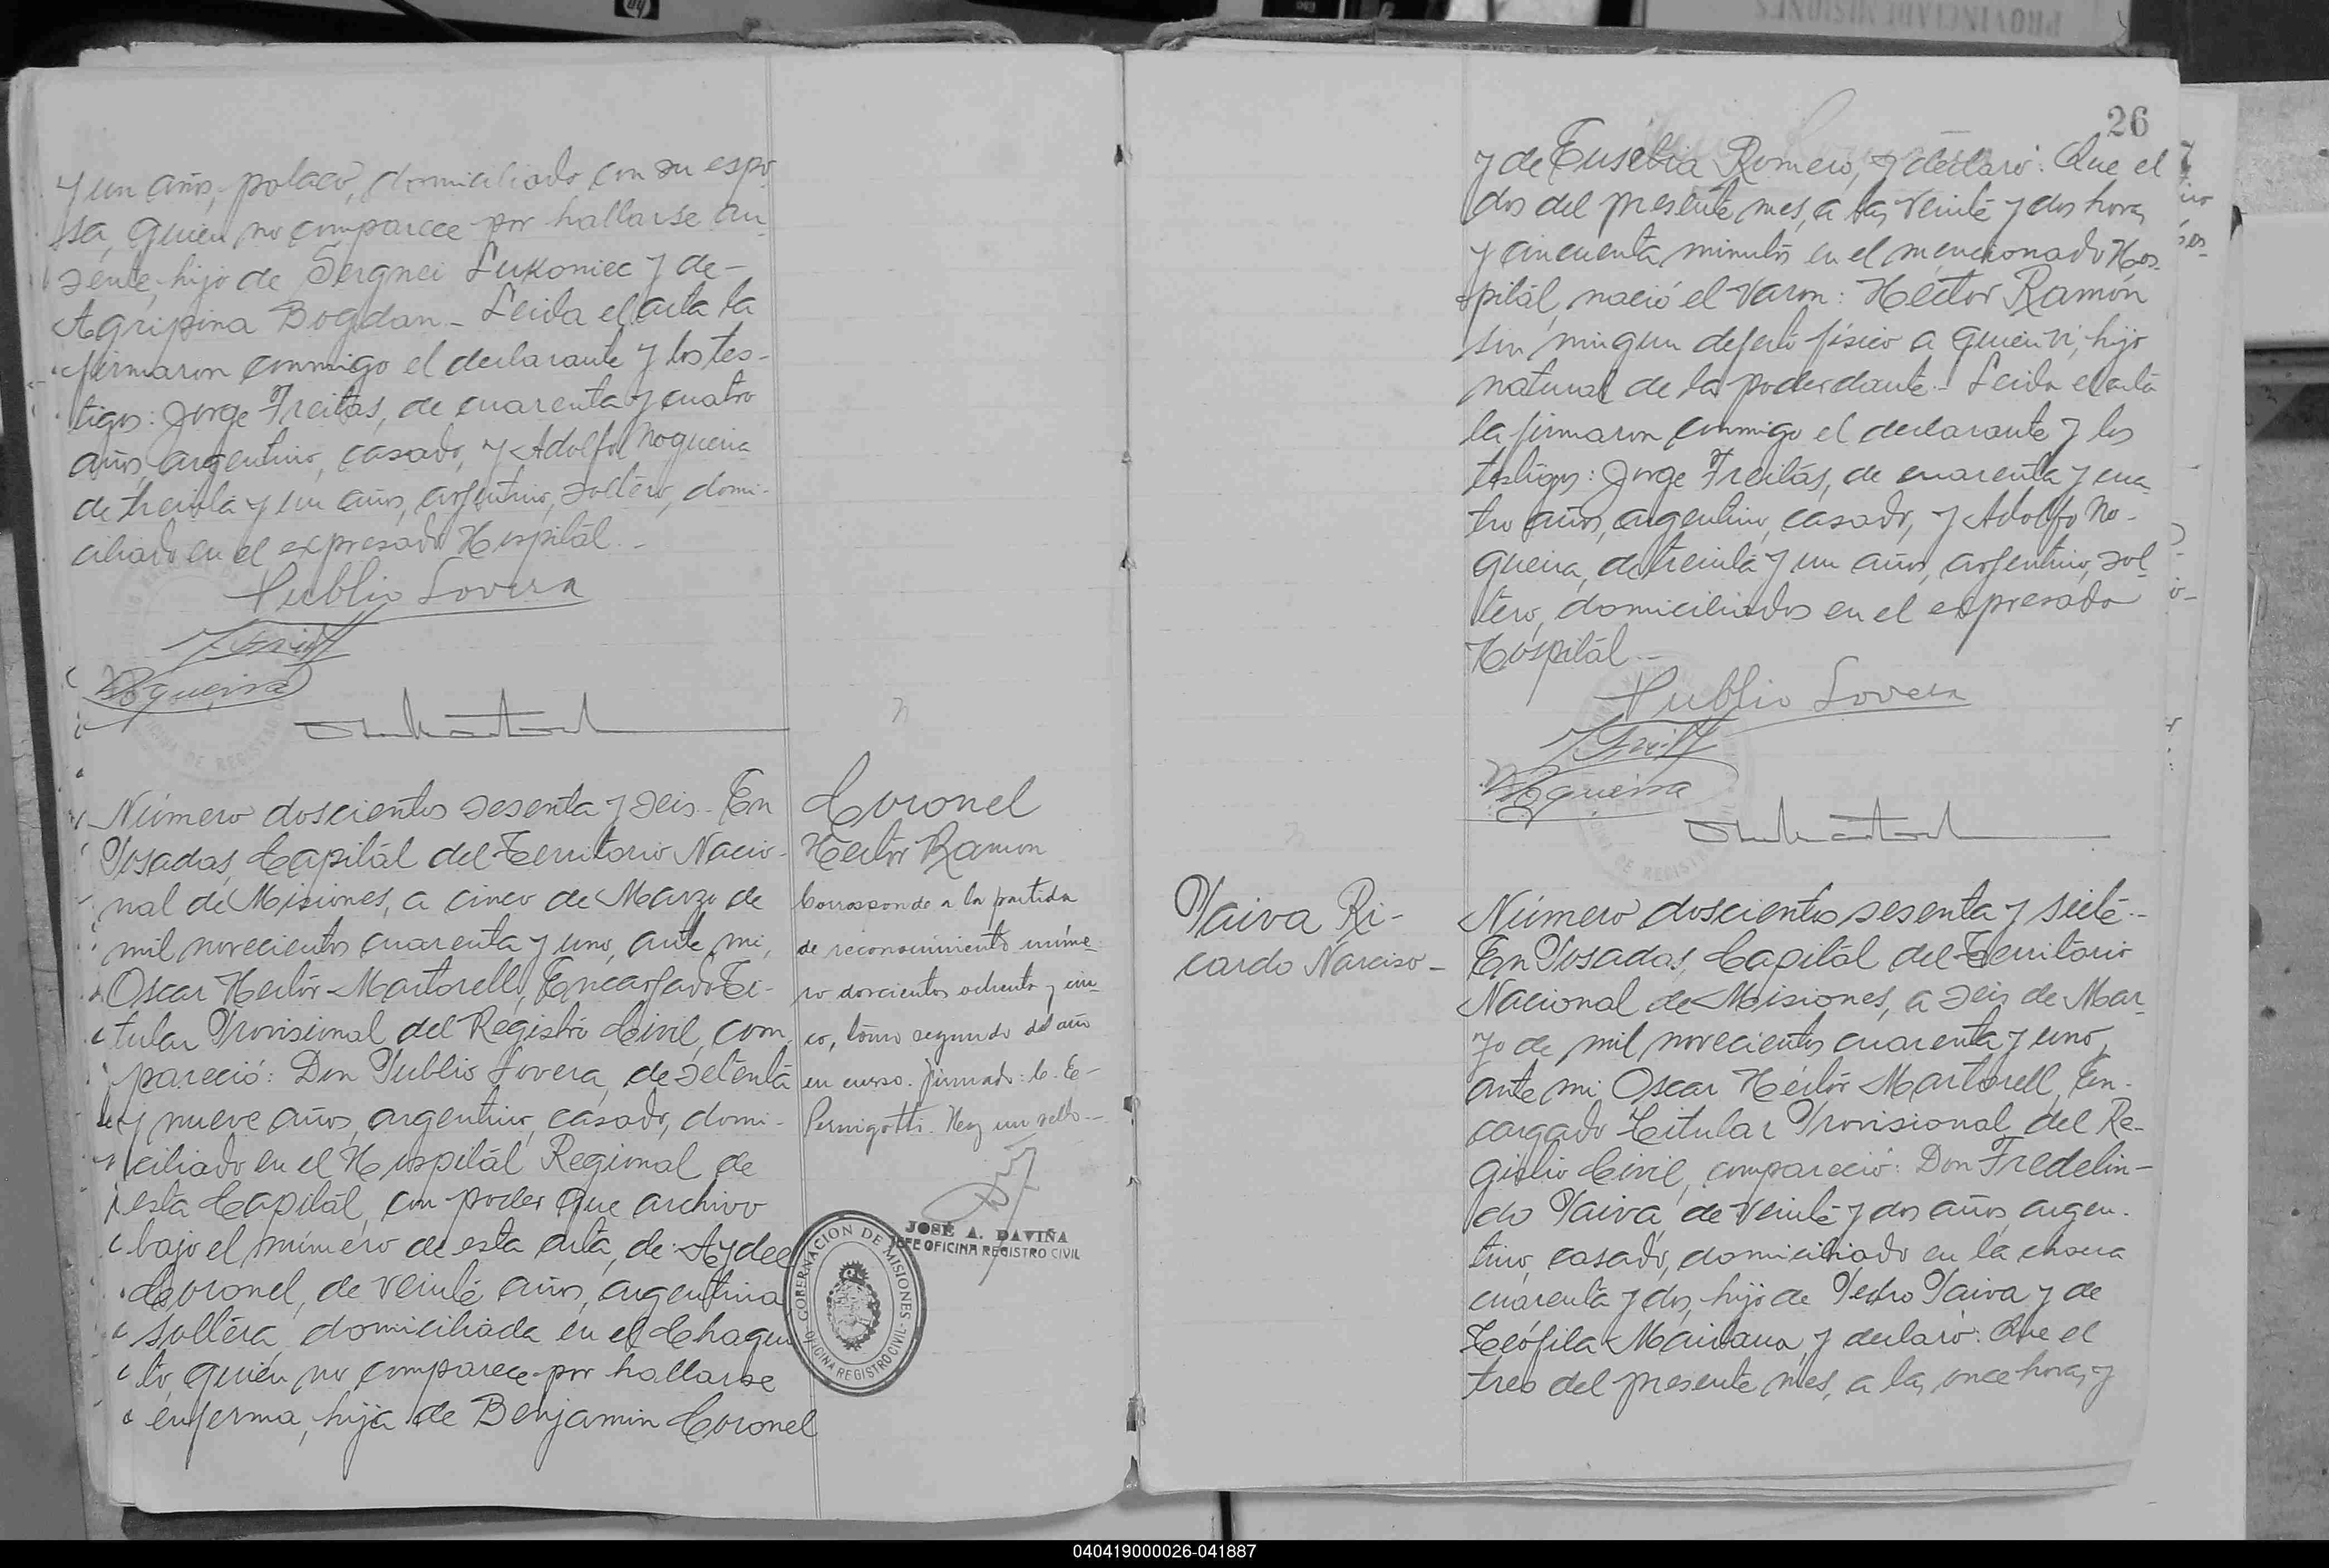 y un años, polaco, domiciliado con su espo
sa, quien no comparece por hallarse au
sente, hijo de Sergnei Lukoniec y de-
Agripina Bogdan_ Leida el acta la
firmaron conmigo el declarante y los tes-
tigos: Jorge Freitas, de cuarenta y cuatro
años, argentino, casado, y Adolfo Nogueira
de treinta y un años, argentino, soltero, domi-
ciliado en el expresado Hospitál._
Publio Lovera
Nogueira
Número doscientos sesenta y seis. En
Posadas, Capitál del Territorio Nacio-
nal de Misiones, a cinco de Marzo de
mil novecientos cuarenta y uno, ante mi,
Oscar Héctor Martorell, Encargado Ti-
tular Provisional del Registro Civil, com
pareció: Don Publio Lovera, de setenta
y nueve años, argentino, casado, domi-
ciliado en el Hospitál Regional de
esta Capitál, con poder que archivo
bajo el número de esta acta, de Aydee
Coronel, de veinte años, argentina
soltera, domiciliada en el Chaqui
to, quién no comparece por hallarse
enferma, hija de Benjamin Coronel
Coronel
Hector Ramon
Corresponde a la partida
de reconocimiento núme-
ro doscientos ochenta y cin-
co, tomo segundo del año
en curso. firmado: C. Te-
Pernigotti. Hay un sello.--
JOSÉ A. DAVIÑA
JEFE OFICINA REGISTRO CIVIL
GOBERNACION DE MISIONES
OFICINA REGISTRO CIVIL
26
y de Eusebia Romero, y declaró: Que el
dos del presente mes, a las veinte y dos horas
y cincuenta minutos en el mencionado Hos-
pitál, nació el varon: Héctor Ramón
sin ningun defecto físico a quien ví, hijo
natural de la poderdante._ Leida el acta
la firmaron conmigo el declarante y los
testigos: Jorge Freitás, de cuarenta y cua-
tro años, argentino, casado, y Adolfo No-
gueira, de treinta y un años, argentino, sol-
tero, domiciliados en el expresado
Hospitál._
Publio Lovera
Nogueira
Paiva Ri-
cardo Narciso_
Número doscientos sesenta y siete.-
En Posadas, Capitál del Territorio
Nacional de Misiones, a seis de Mar-
zo de mil novecientos cuarenta y uno,
ante mi, Oscar Héctor Martorell, En-
cargado Titular Provisional del Re-
gistro Civil, compareció: Don Fredelin-
do Paiva, de veinte y dos años, argen-
tino, casado, domiciliado en la chacra
cuarenta y dos, hijo de Pedro Paiva y de
Teófila Maidana, y declaró: Que el
tres del presente mes, a las once horas y
040419000026-041887